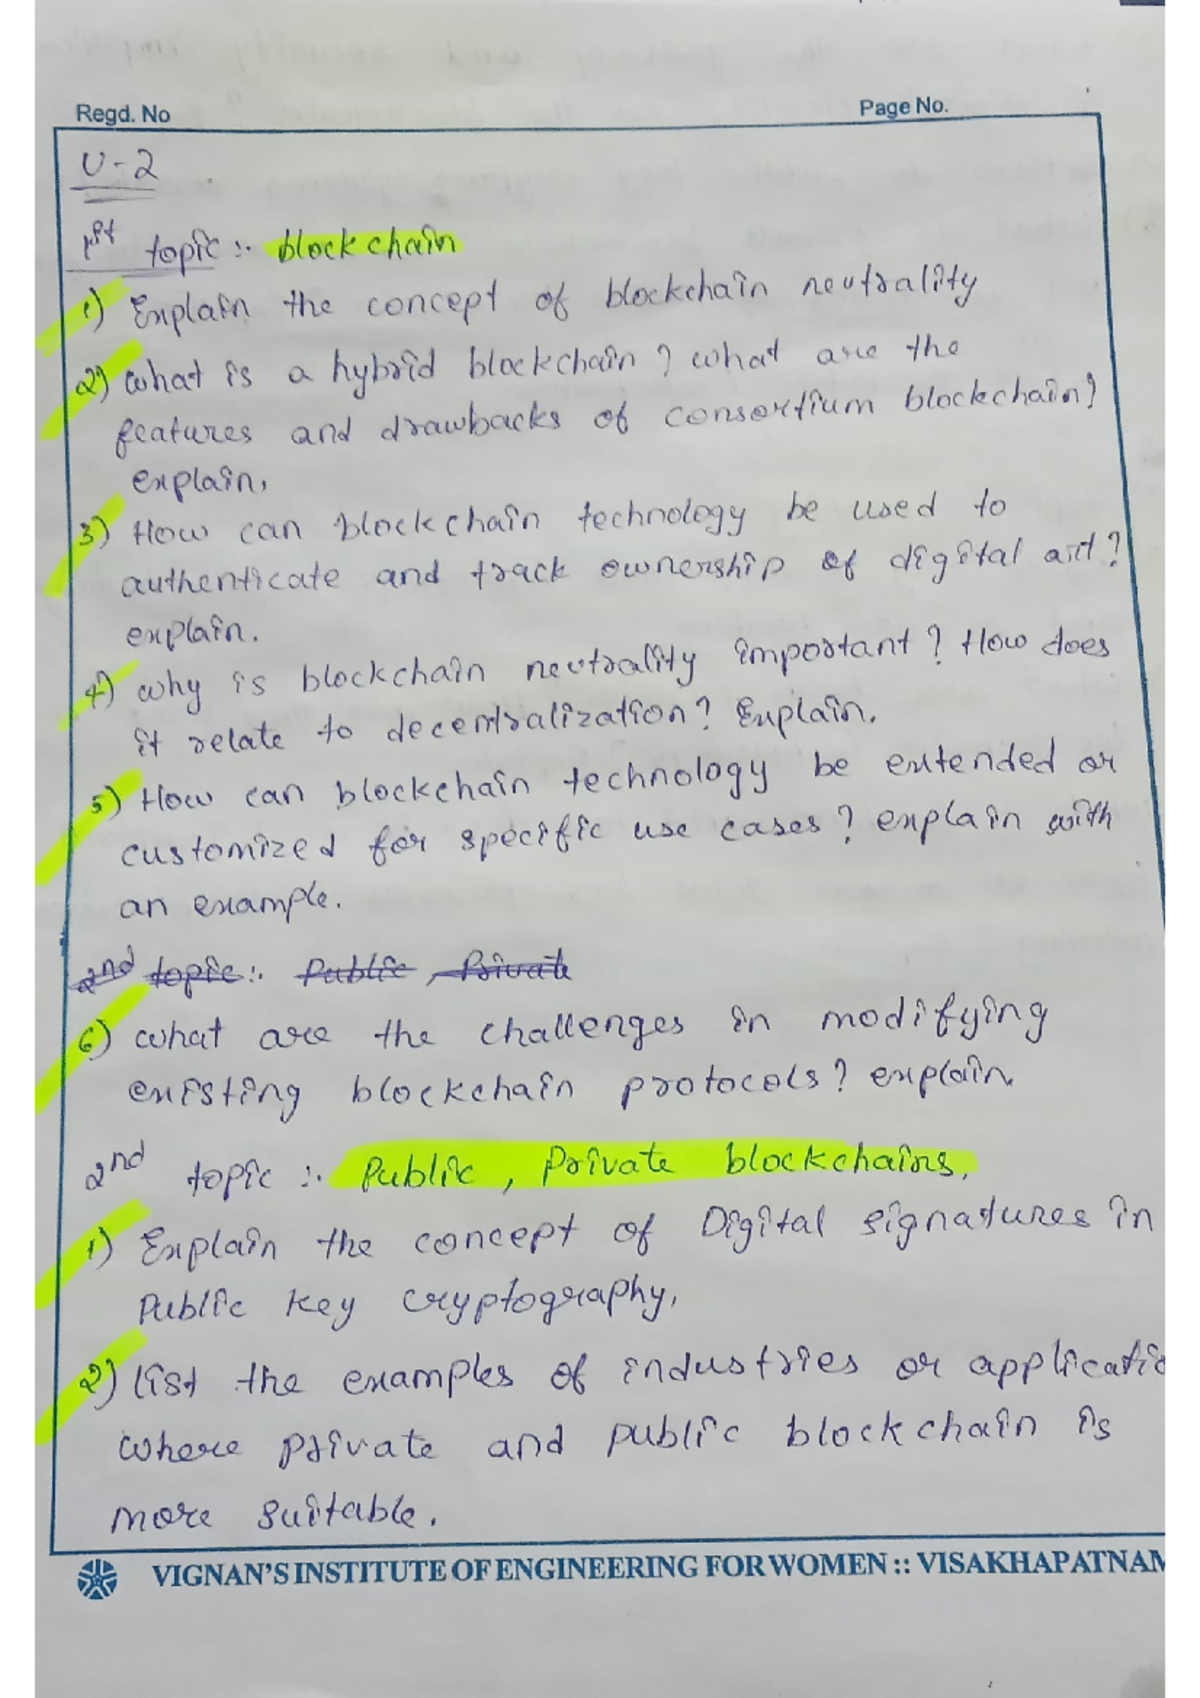 Regd. No
Page No.
U-2
1st topic :- blockchain
1) Explain the concept of blockchain neutrality
2) What is a hybrid blockchain? what are the
features and drawbacks of consortium blockchain?
explain.
3) How can blockchain technology be used to
authenticate and track ownership of digital art?
explain.
4) why is blockchain neutrality important? How does
it relate to decentralization? Explain.
5) How can blockchain technology be extended or
customized for specific use cases? explain with
an example.
2nd topic :- Public, Private
6) what are the challenges in modifying
existing blockchain protocols? explain.
2nd topic :- Public, Private blockchains.
1) Explain the concept of Digital signatures in
Public key cryptography.
2) list the examples of industries or applicatio
where private and public blockchain is
more suitable.
VIGNAN'S INSTITUTE OF ENGINEERING FOR WOMEN :: VISAKHAPATNAM